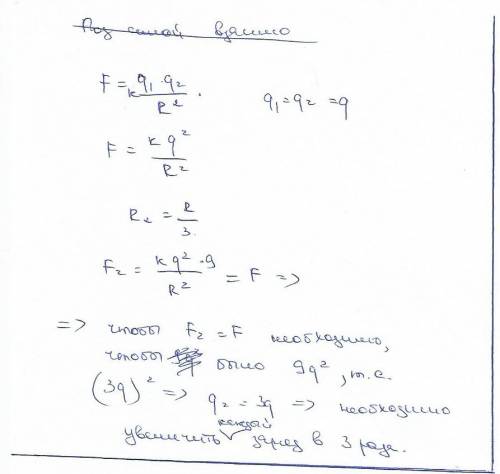 Под силой взаимо
F = k q₁ · q₂ / R² . q₁ = q₂ = q
F = k q² / R²
R₂ = R / 3
F₂ = k q² · 9 / R² = F =>
=> чтобы F₂ = F необходимо,
чтобы было 9q², т.е.
(3q)² => q₂ = 3q => необходимо
каждый
увеличить заряд в 3 раза.